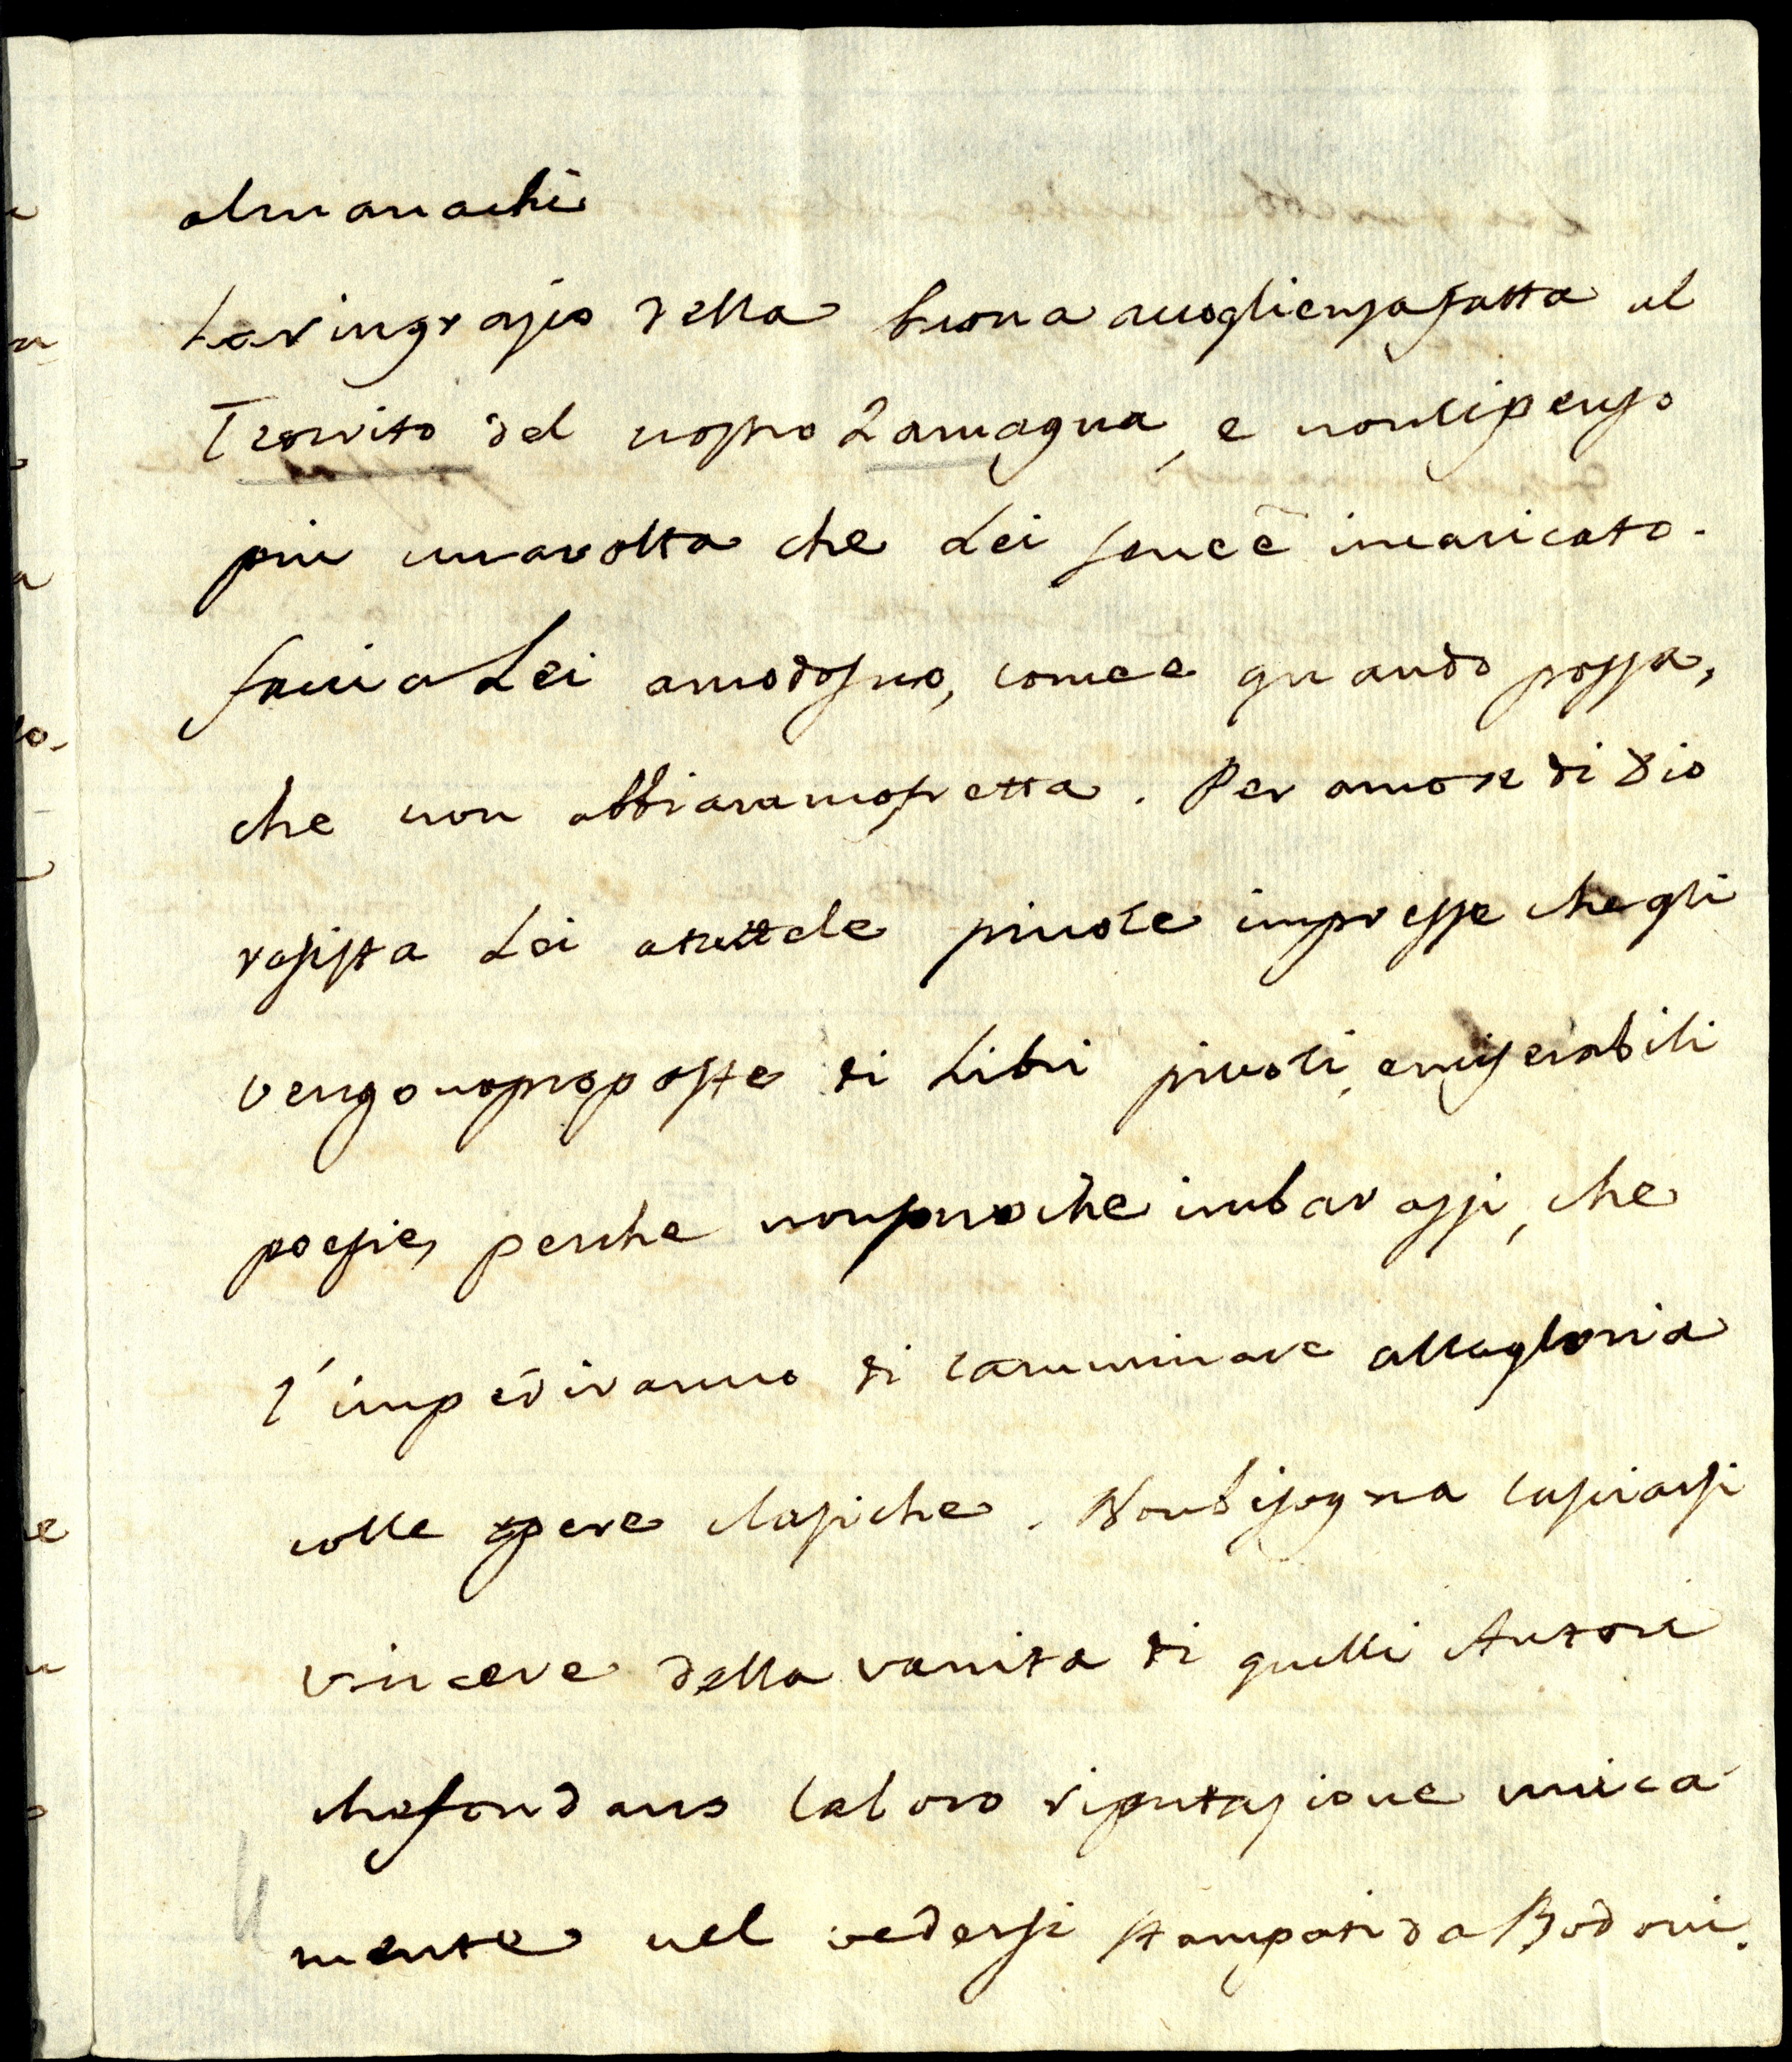 almanachi
La ringrazio della buona accoglienza fatta al
Teocrito del nostro Zamagna, e non ci penso
piu una volta che Lei se ne è incaricato.
faccia Lei a modo suo, come e quando possa,
che non abbiamo fretta. Per amor di Dio
resista Lei a tutte le picole impresse che gli
vengono proposte di Libri picoli, e miserabili
poesie, perche non sono che imbarassi, che
l'impediranno di camminare alla gloria
colle opere classiche. Non bisogna lasciarsi
vincere della vanita di quelli Autori
che fondano la loro riputazione unica
mente nel vedersi stampati da Bodoni.